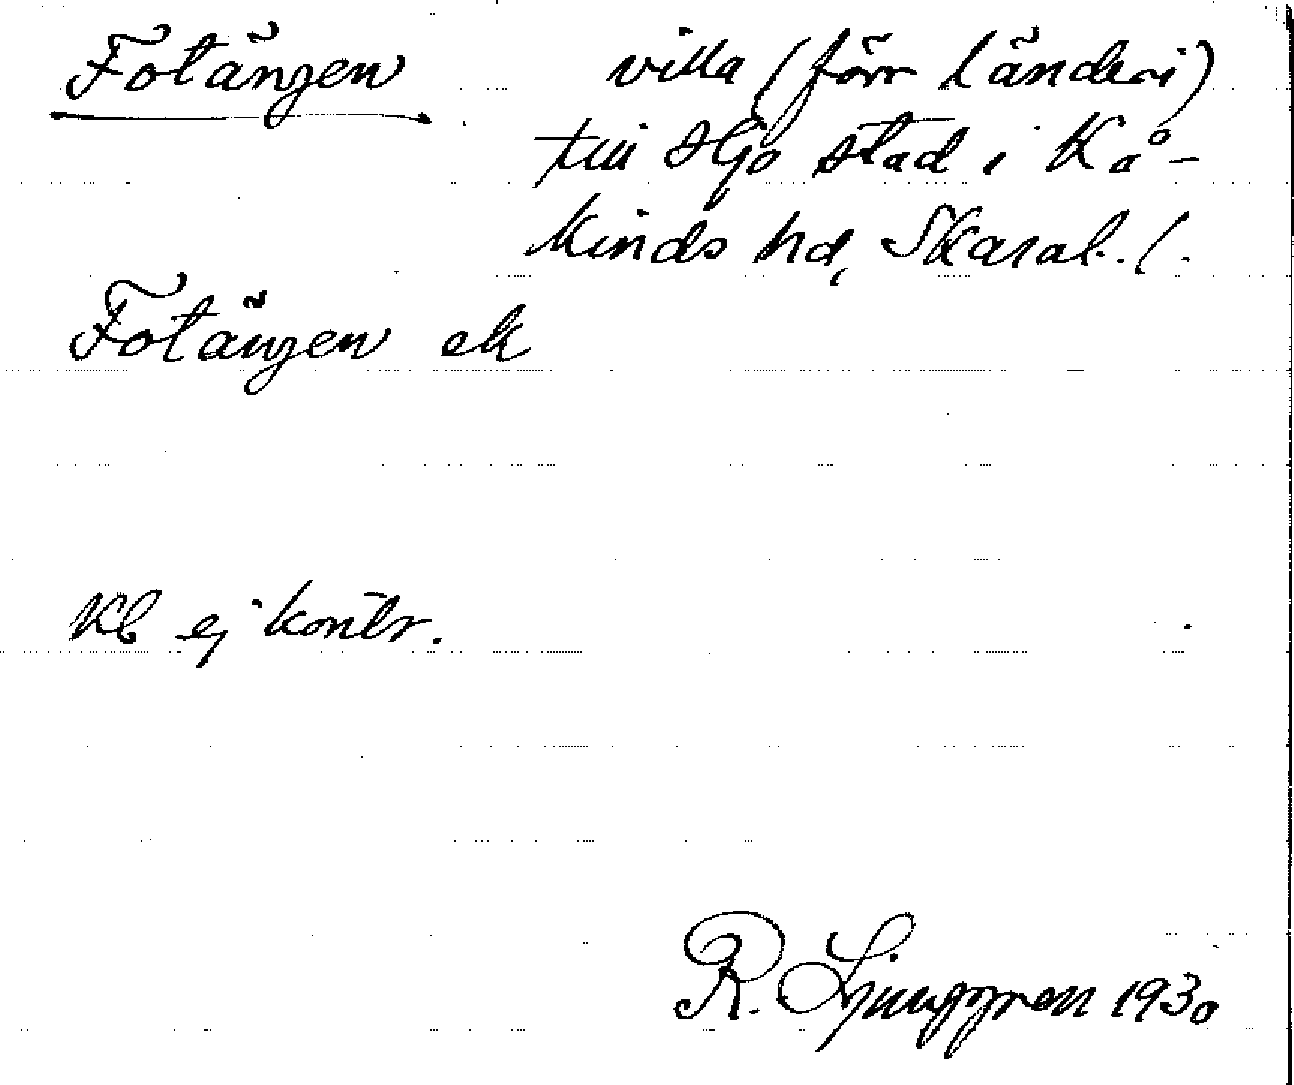 Fotängen villa (förr länderi)
till Hjo stad i Kå-
kinds hd, Skarab. l.
Fotängen ek
Kb ej kontr.
R. Ljunggren 1930